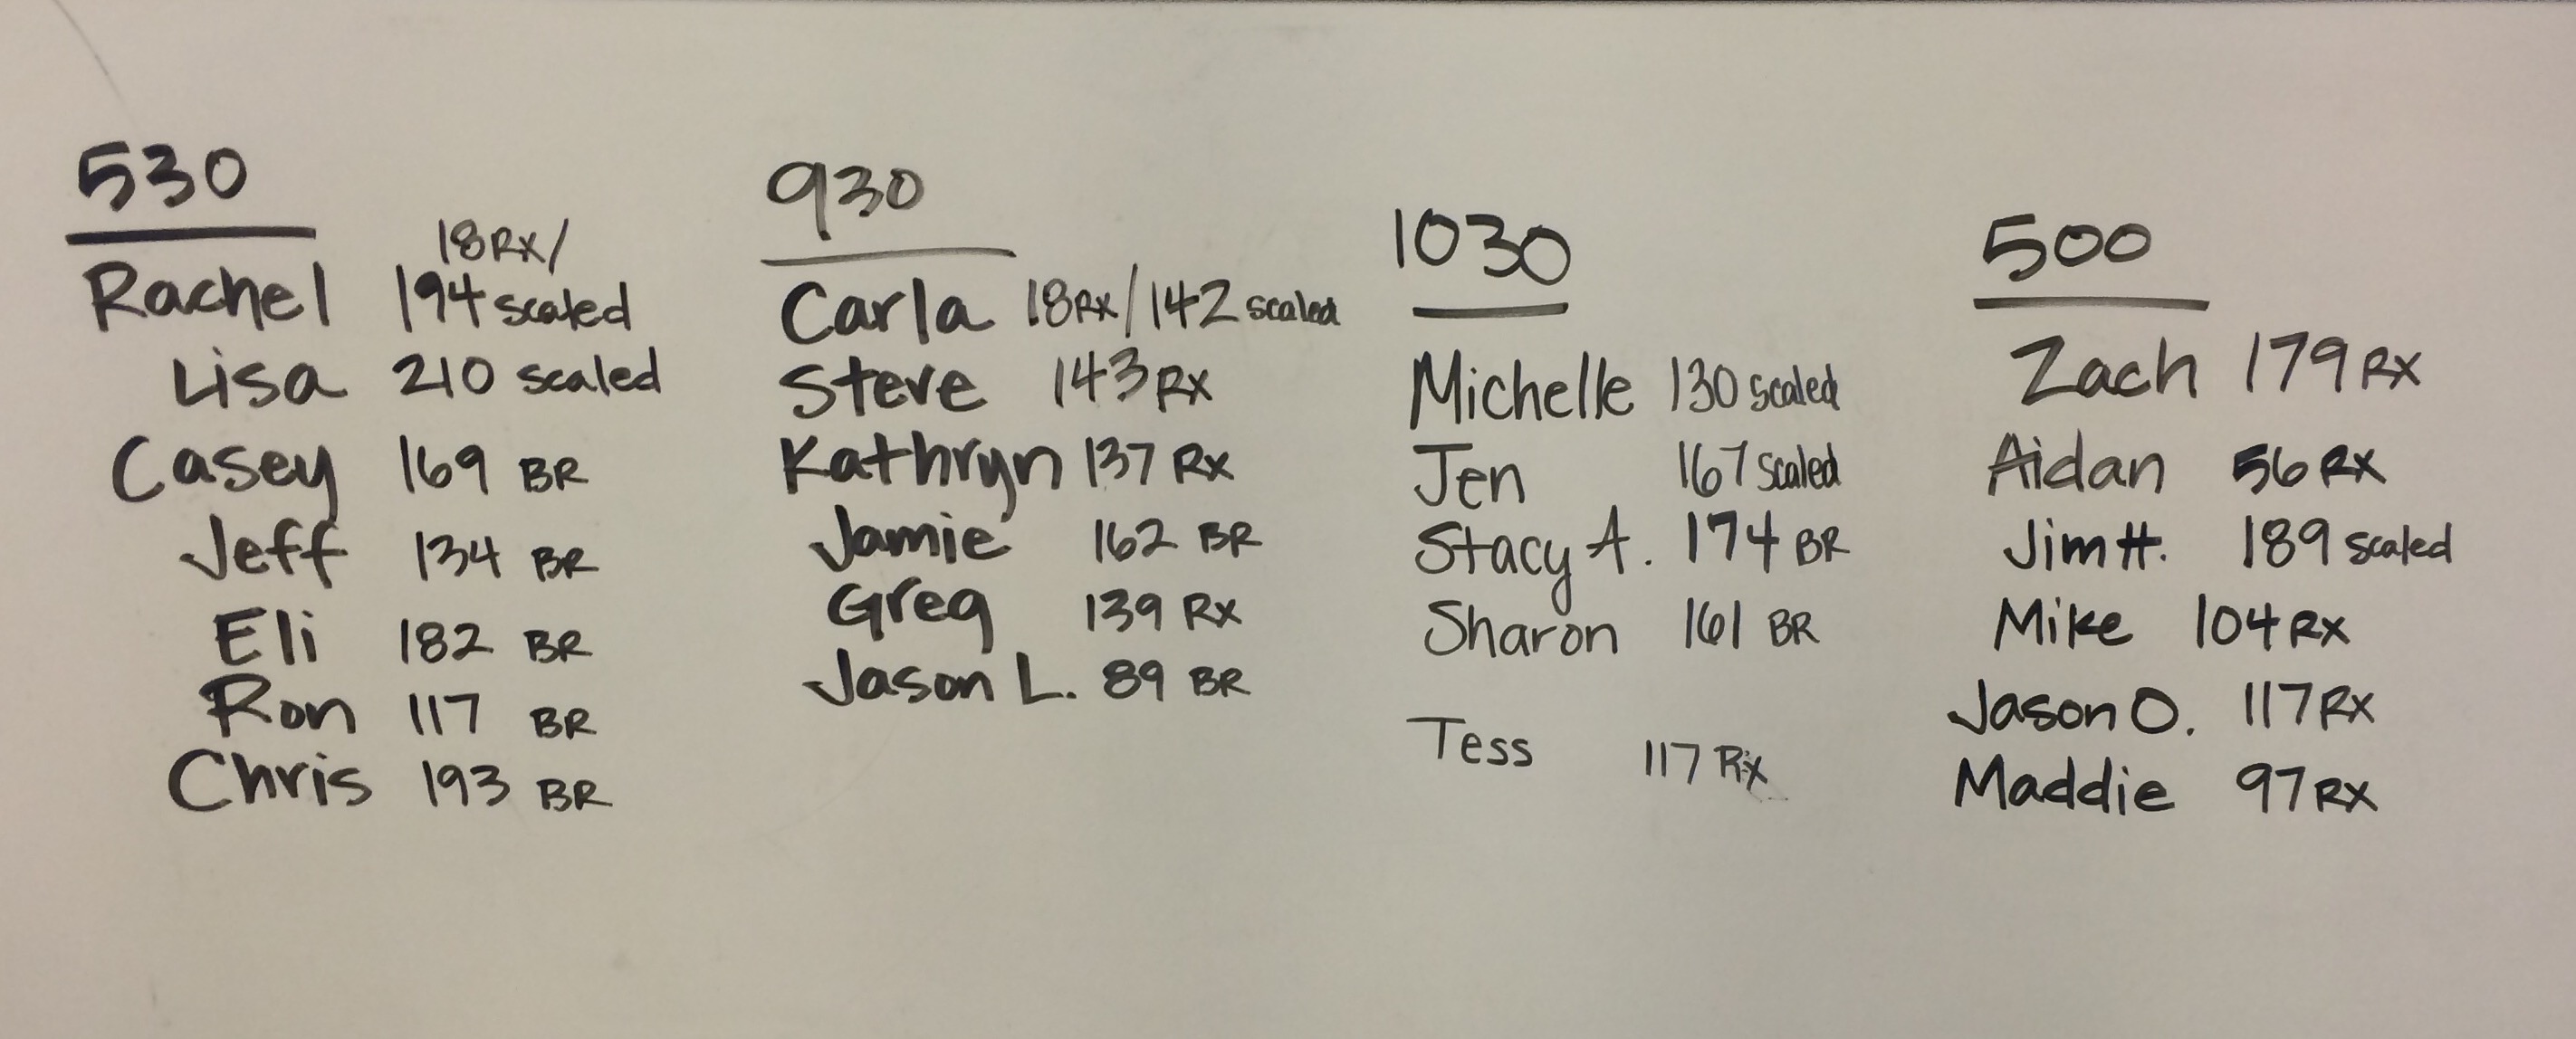 530
18 RX/
Rachel 194 scaled
Lisa 210 scaled
Casey 169 BR
Jeff 134 BR
Eli 182 BR
Ron 117 BR
Chris 193 BR
930
Carla 18 RX/142 scaled
Steve 143 RX
Kathryn 137 RX
Jamie 162 BR
Greg 139 RX
Jason L. 89 BR
1030
Michelle 130 scaled
Jen 167 scaled
Stacy A. 174 BR
Sharon 161 BR
Tess 117 Rx
500
Zach 179 RX
Aidan 56 RX
Jim H. 189 scaled
Mike 104 RX
Jason O. 117 RX
Maddie 97 RX